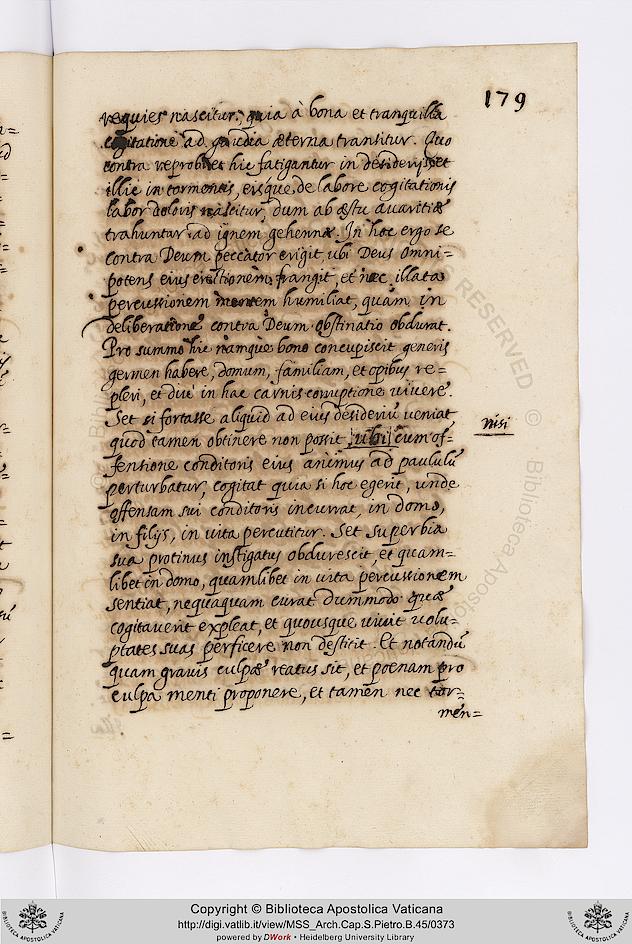 179
requies nascitur, quia à bona et tranquilla
cogitatione ad gaudia æterna transitur. Quo
contra reprobi et hic fatigantur in desiderijs, et
illic in tormentis, eisque de labore cogitationis
labor doloris nascitur, dum ab æstu avaritiæ
trahuntur ad ignem gehennæ. In hoc ergo se
contra Deum peccator erigit, ubi Deus omni-
potens eius erectionem frangit, et nec illata
percussionem mentem humiliat, quam in
deliberatione contra Deum obstinatio obdurat.
Pro summo hic namque bono concupiscit generis
germen habere, domum, familiam, et opibus re=
pleri, et diu in hac carnis corruptione vivere.
Set si fortasse aliquid ad eius desideriũ veniat
quod tamen obtinere non possit, ubi cum of-
nisi
fensione conditoris eius animus ad paululũ
perturbatur, cogitat quia si hoc egerit, unde
offensam sui conditoris incurrat, in domo,
in filijs, in vita percutitur. Set superbia
sua protinus instigatus obdurescit, et quam=
libet in domo, quamlibet in vita percussionem
sentiat, nequaquam curat dummodo quæ
cogitaverit expleat, et quousque vivit volu-
ptates suas perficere non destitit. Et notandũ
quam gravis culpæ reatus sit, et poenam pro
culpa menti proponere, et tamen nec tor-
men=
Copyright © Biblioteca Apostolica Vaticana
http://digi.vatlib.it/view/MSS_Arch.Cap.S.Pietro.B.45/0373
powered by DWork • Heidelberg University Library